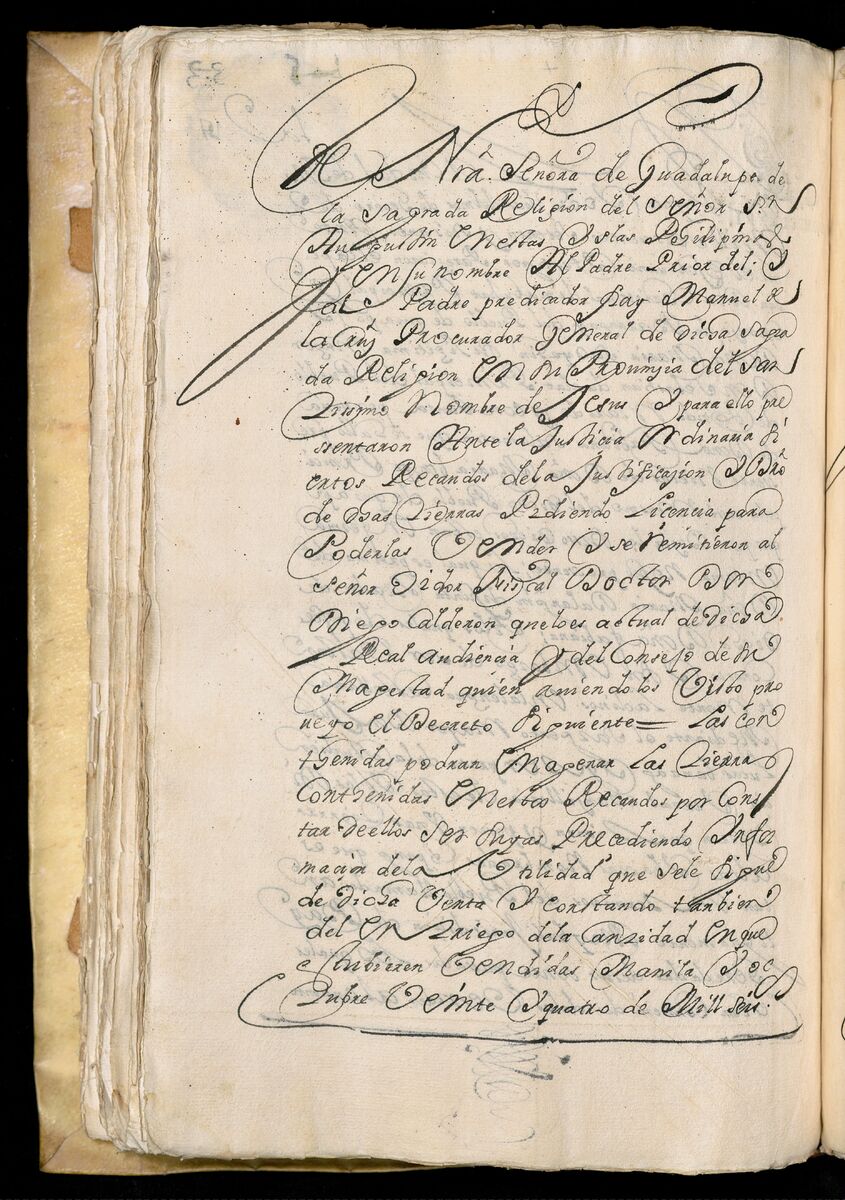 de Nrã. Señora de Guadalupe. de
la Sagrada Religion del Señor Sn.
Augustin En estas Yslas Philipinas
Y En su nombre Al Padre Prior del; Y
al Padre predicador fray Manuel de
la Cruz Procurador General de dicha sagra
da Religion En su Provinzia del San
tissimo Nombre de Jesus Y para ello pre
sentaron Ante la Justicia Ordinaria si
ertos Recaudos de la Justificazion Y Dro
de dhas tierras Pidiendo Licencia para
Poderlas Vender Y se Remitieron al
señor Oidor Fiscal Doctor Don
Diego Calderon que lo es actual de dicha
Real audiencia y del Consejo de su
Magestad quien aviendolos Visto pro
ueyo el Decreto Siguiente = Las con
thenidas podran Enagenar Las tierras
Conthenidas En estos Recaudos por Cons
tar de ellos ser suyas Precediendo Infor
macion de la Vtilidad que se le sigue
de dicha Venta Y constando tambien
del Entriego de la Cantidad En que
estubieren Vendidas Manila Y oc
tubre Veinte Y quatro de Mill seis.